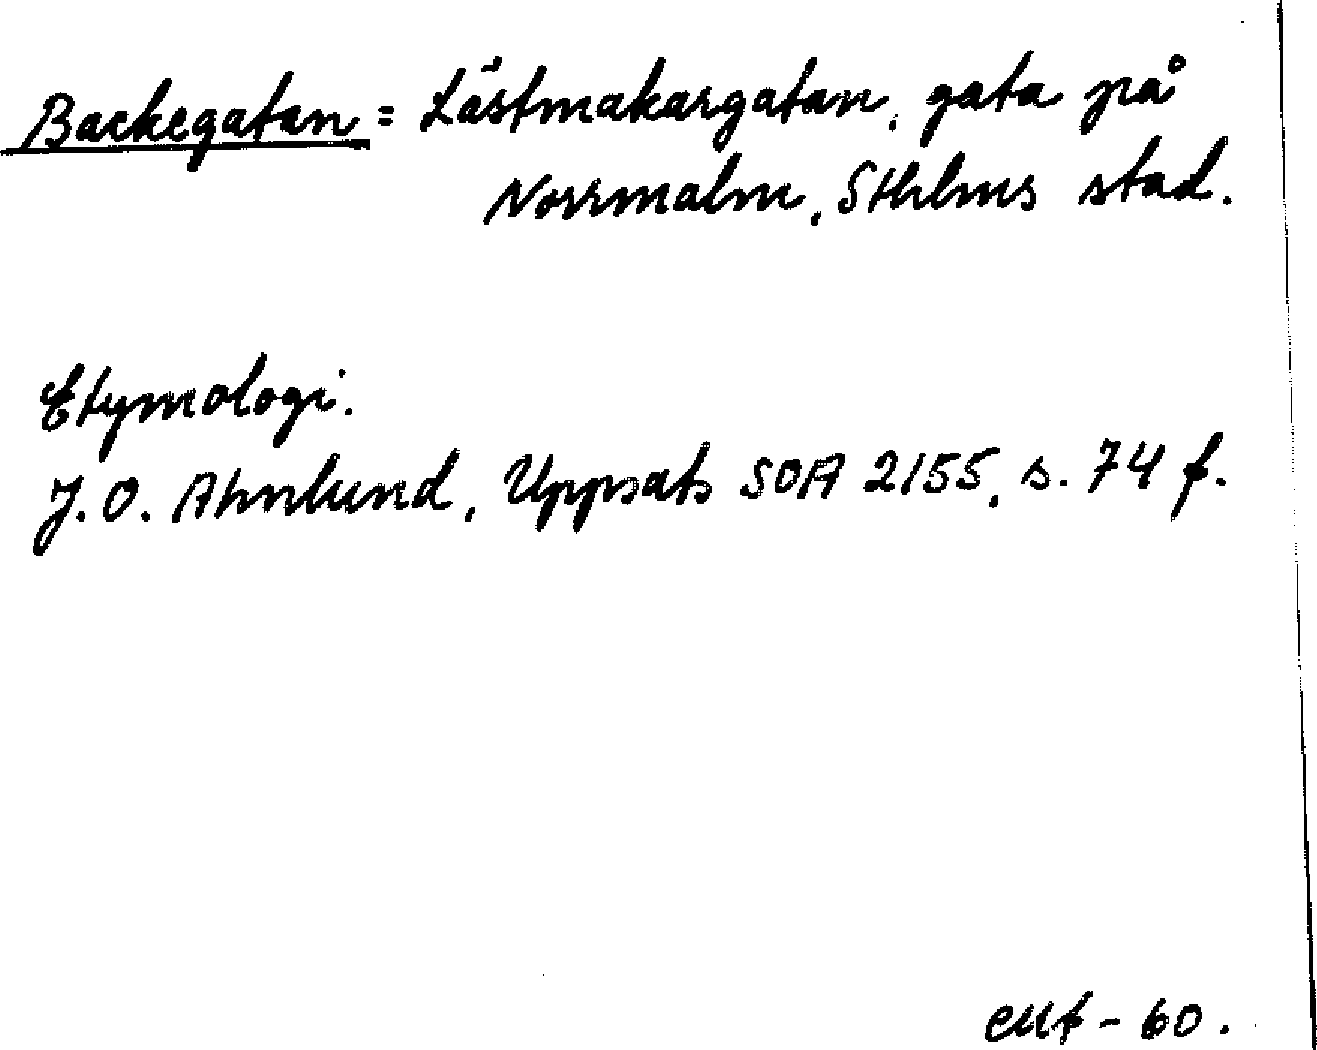 Backegatan = Lästmakargatan, gata på
Norrmalm, Sthlms stad.
Etymologi.
J. O. Ahnlund, Uppsats SOA 2155, s. 74 f.
EMf - 60.